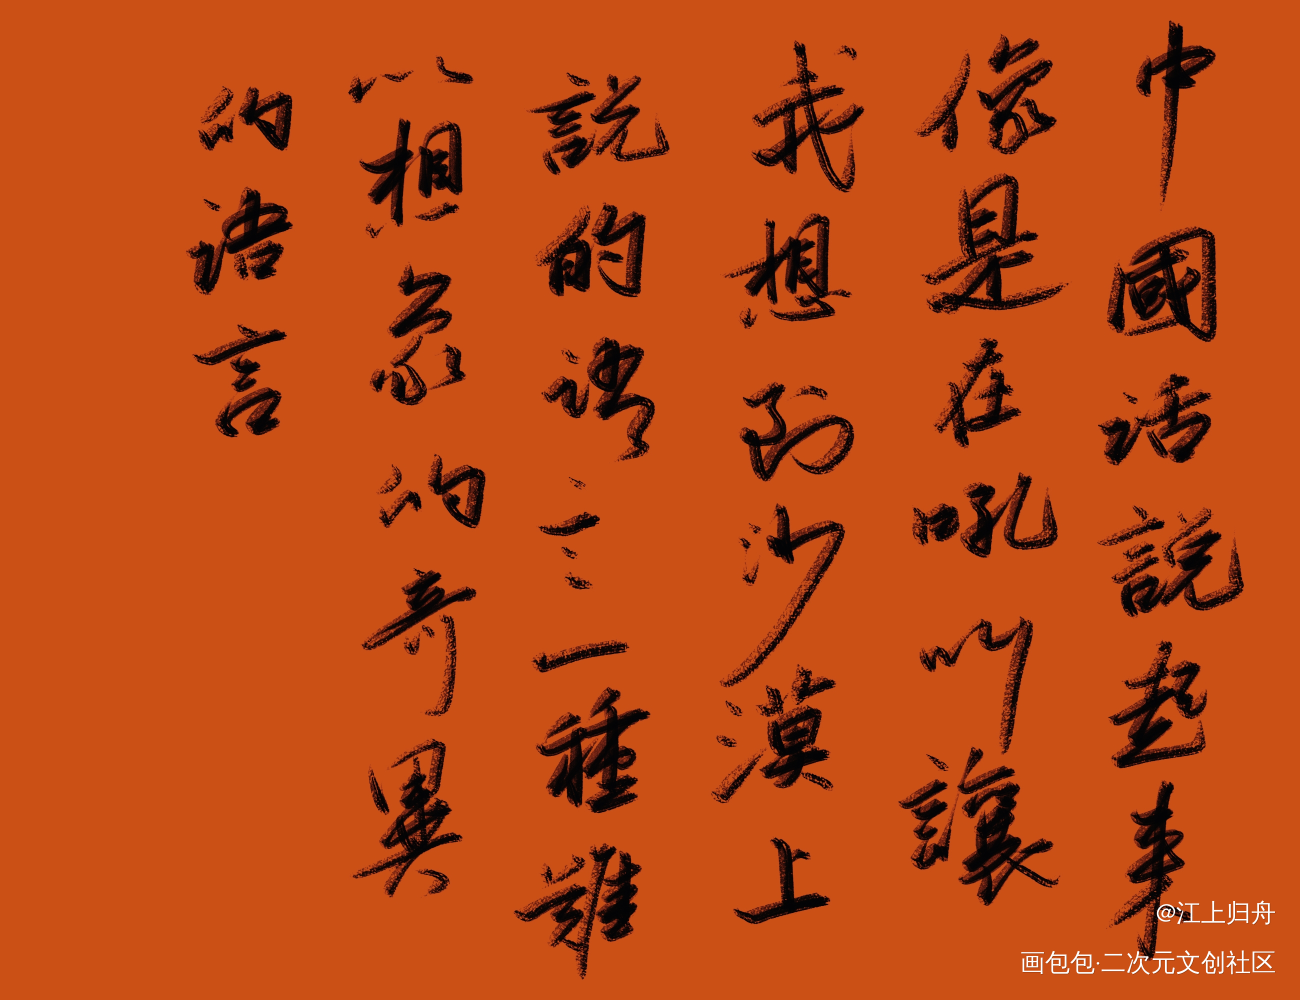 中國话說起来
像是在吼叫讓
我想到沙漠上
說的語言一種難
以想象的奇異
的语言
@江上归舟
画包包·二次元文创社区